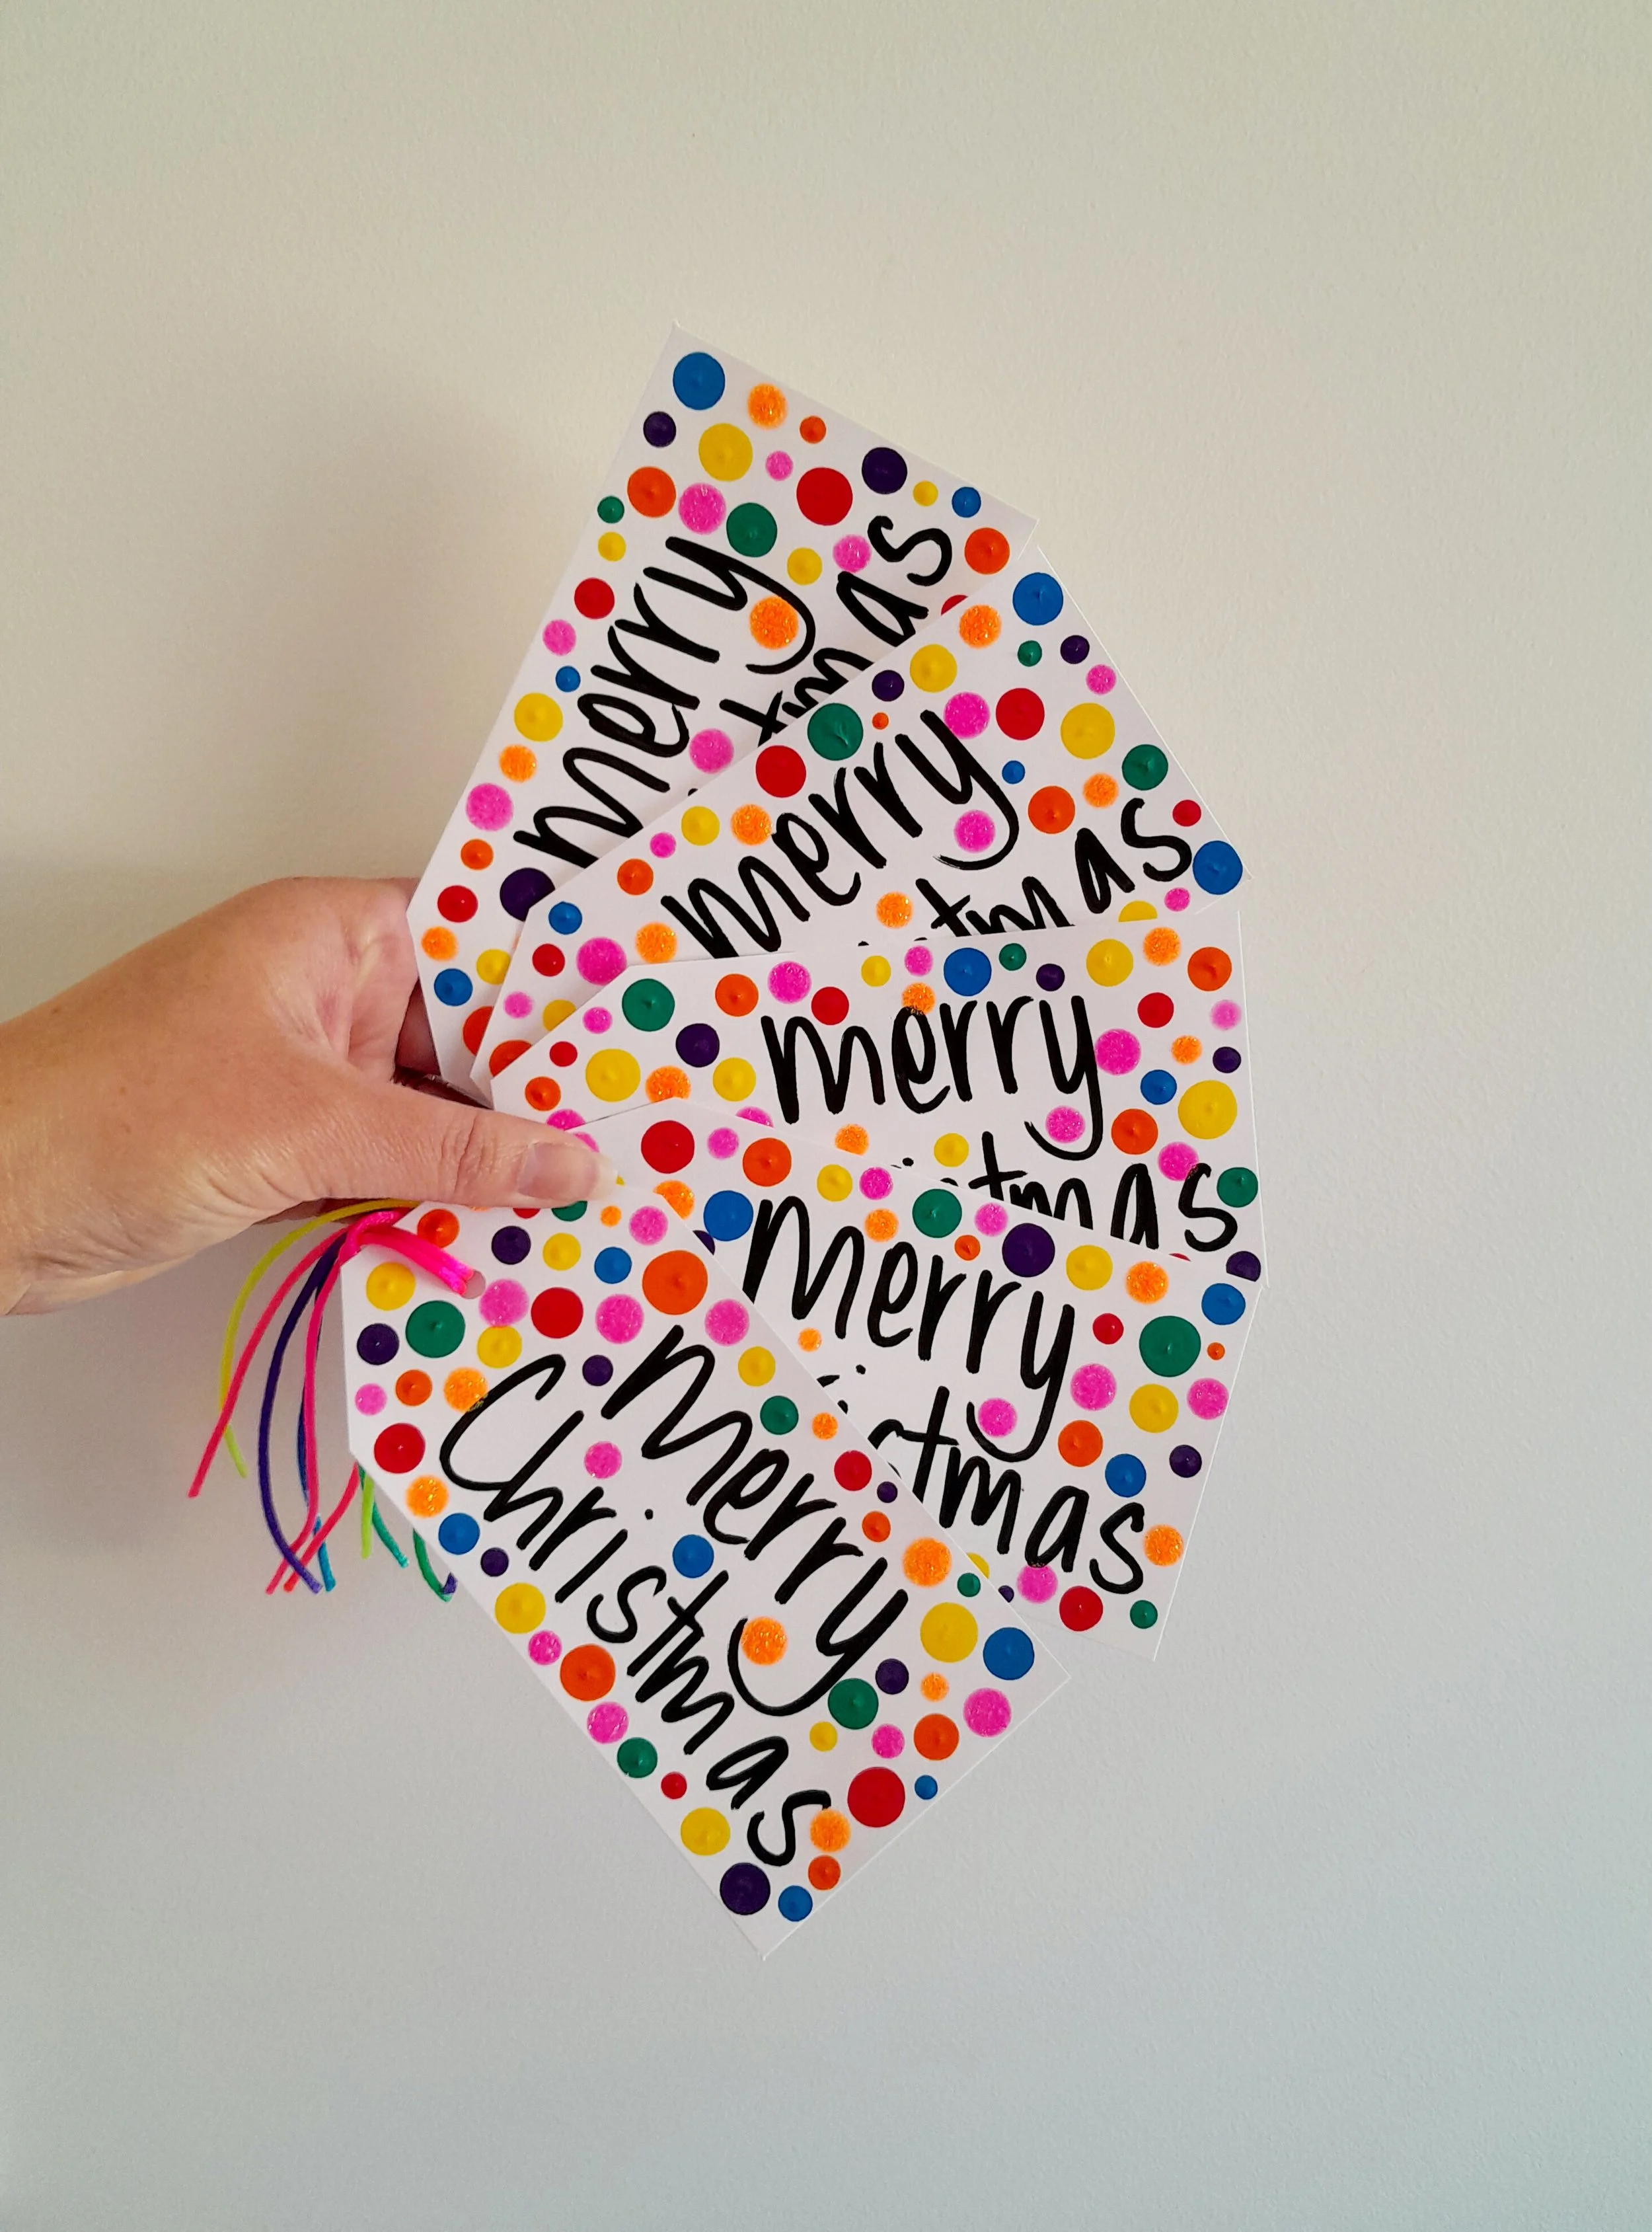 merry
tmas
merry
tmas
merry
tmas
merry
stmas
merry
Christmas